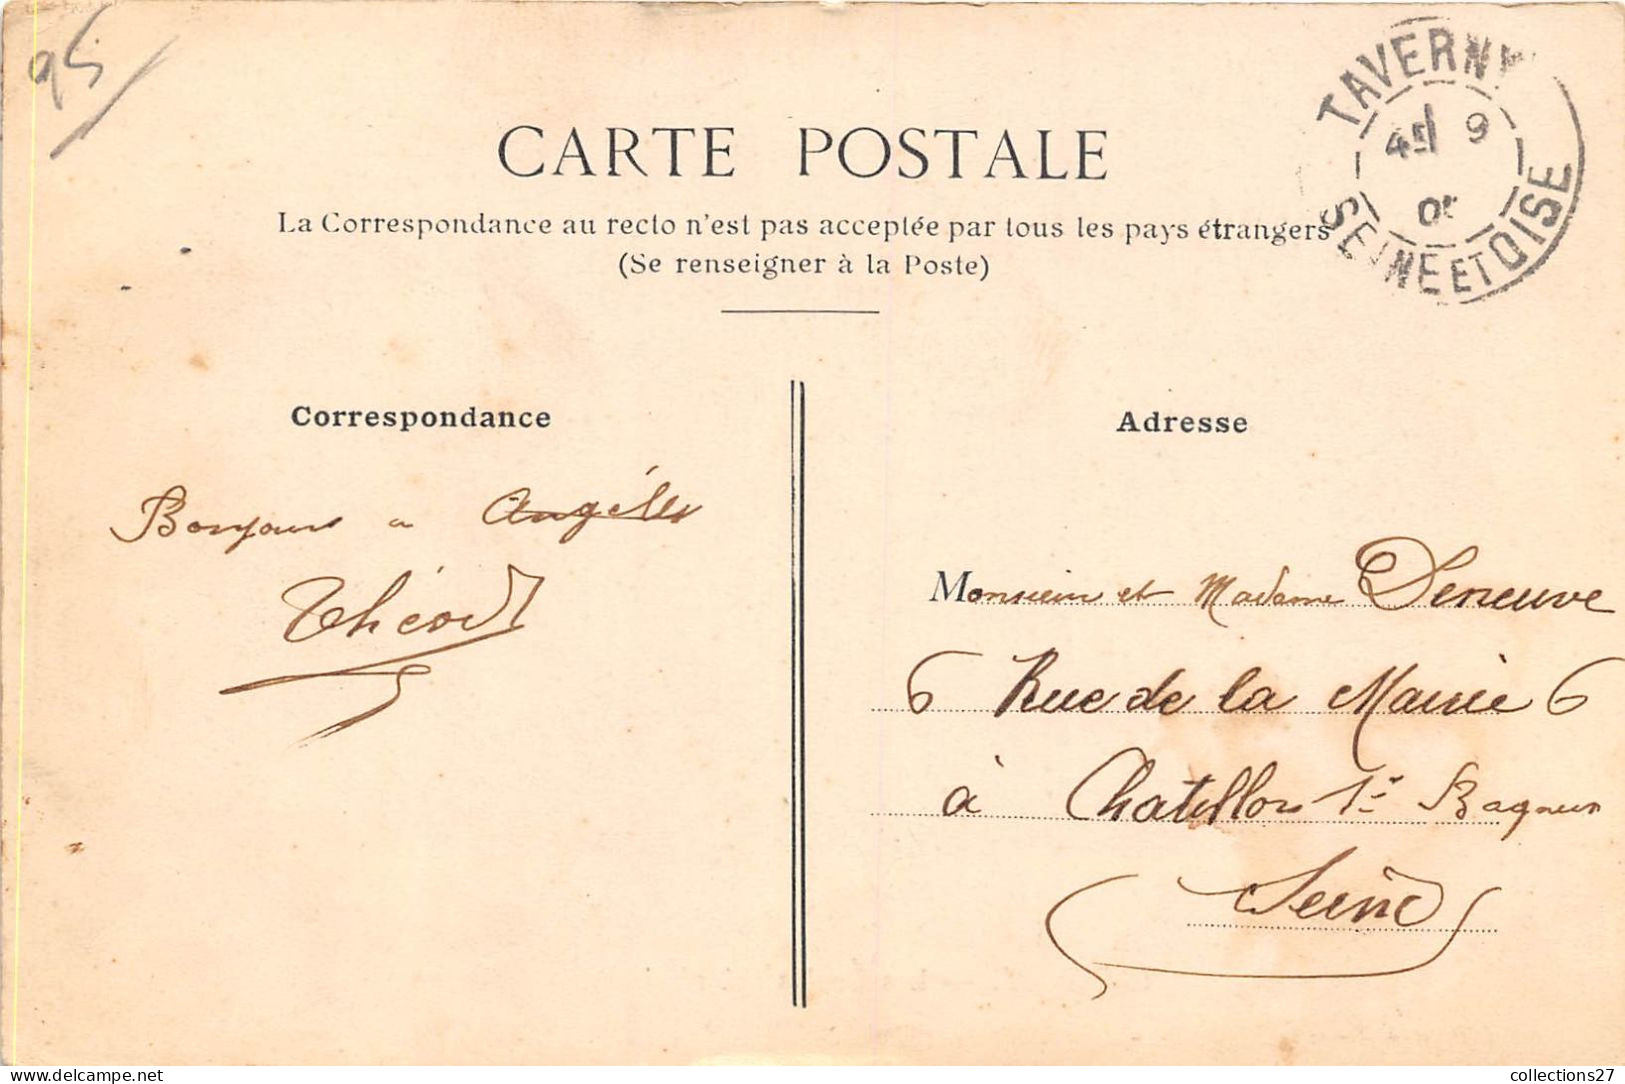 95
CARTE POSTALE
La Correspondance au recto n'est pas acceptée par tous les pays étrangers
(Se renseigner à la Poste)
TAVERNY
9
SEINE ET OISE
Correspondance
Adresse
Bonjour a Angèle
Monsieur et Madame Deneuve
6 Rue de la Mairie 6
à Chatillon s/s Bagneux
Seine
collections27